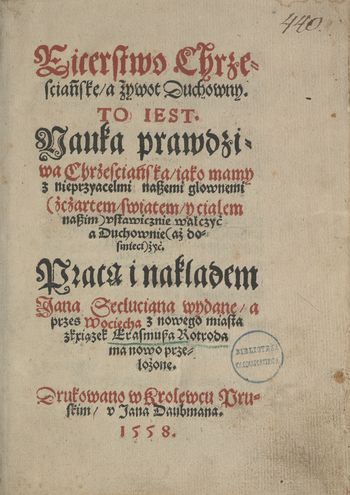 440.
Ricerstwo Chrze-
sciańske/a żywot Duchowny.
TO IEST.
Nauka prawdzi-
wa Chrżesciańska/iako mamy
z nieprzyacelmi naßemi glownemi
(żcżartem/swiątem/y cialem
naßim) vstawicznie walczyć
a Duchownie (aż do-
śmieci) żyć.
Pracą i nakladem
Jana Secluciana wydane/a
przes Wociecha z nowego miasta
z kxiążek Erasmußa Rotroda
ma nowo prze-
lożone.
Drukowano w Krolewcu Pru-
skim/ v Jana Daubmana.
1558.
BIBLIOTEKA